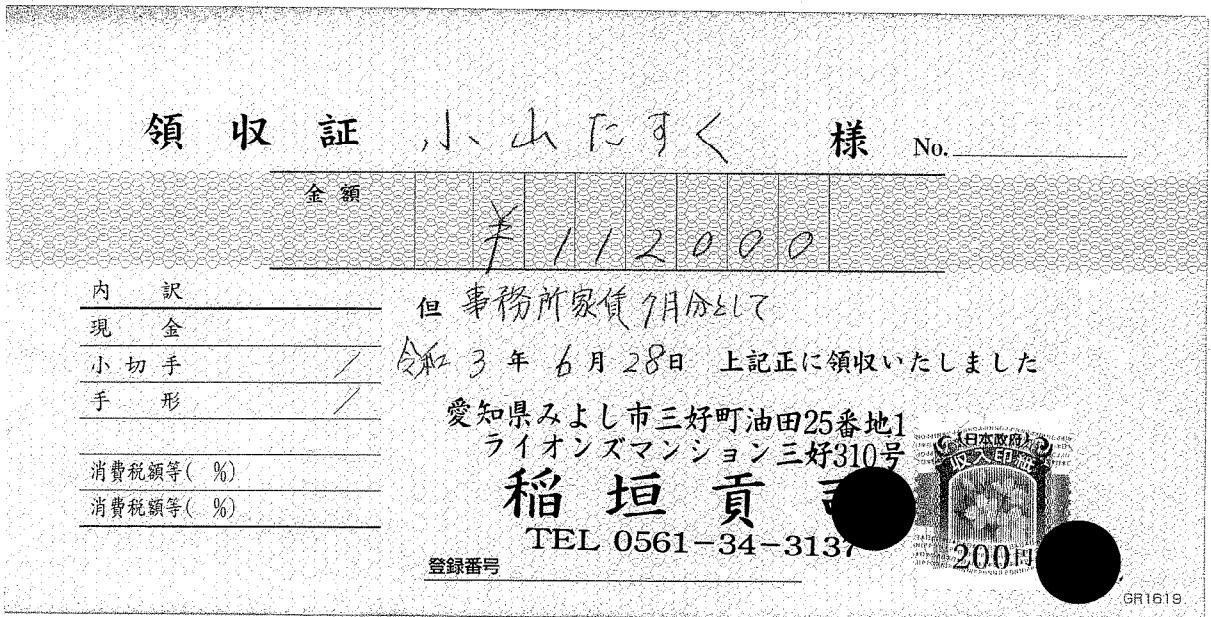 領収証 小山たすく 様 No.
金額
¥112000
内訳
現金
小切手 /
手形 /
消費税額等( %)
消費税額等( %)
但 事務所家賃7月分として
令和3年6月28日 上記正に領収いたしました
愛知県みよし市三好町油田25番地1
ライオンズマンション三好310号
稲垣貢
TEL 0561-34-3137
登録番号
日本政府
収入印紙
200円
GR1619